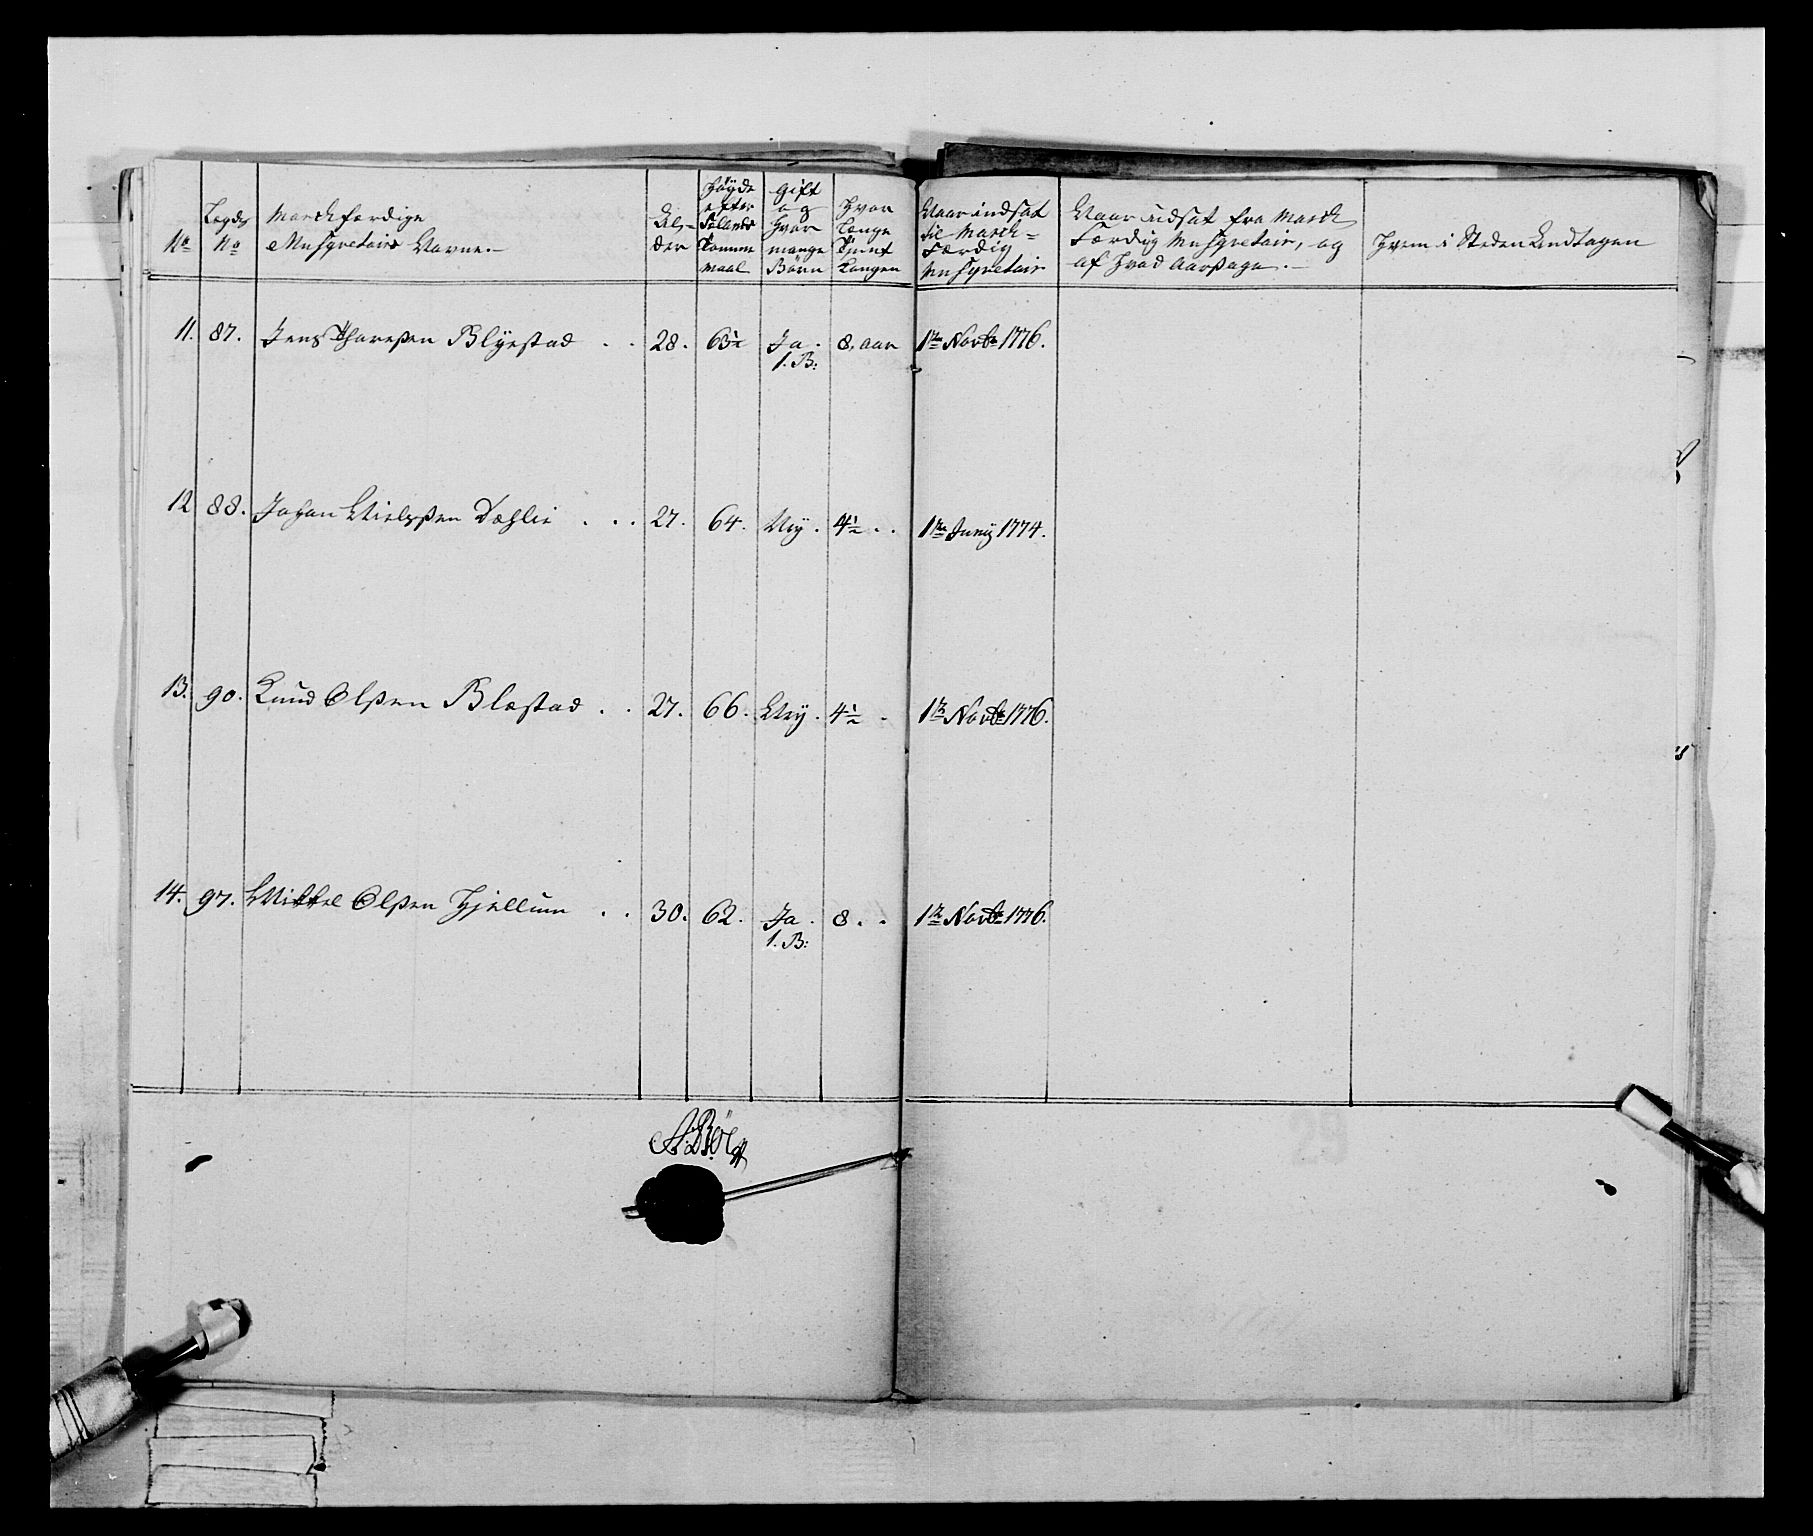 No
Legds
No
March færdige
Musqvetairs Navne.-
Al-
der
Høyde
efter
Sælands
Tomme
maal
gift
og
Hvor
mange
Børn
Hvor
Længe
Tjent
Kongen
Naar indsat
til March-
Færdig
Musqvetair
Naar udsat fra March
Færdig Musqvetair, og
af hvad Aarsage.-
Hvem i Steden Andtagen
11. 87. Jens Thoresen Blystad . . 28. 63½ Ja. 8. aar 1te Novbr 1776.
1. B:
12 88. Johan Nielssen Dæhlie . . . 27. 64. Ney. 4½ . . 1te Junij 1774.
13. 90. Knud Olsen Blæstad . . 27. 66. Ney. 4½ . 1te Novbr 1776.
14. 97. Mikkel Olsen Hjellum . . 30. 62. Ja. 8. . 1te Novbr 1776.
1. B: